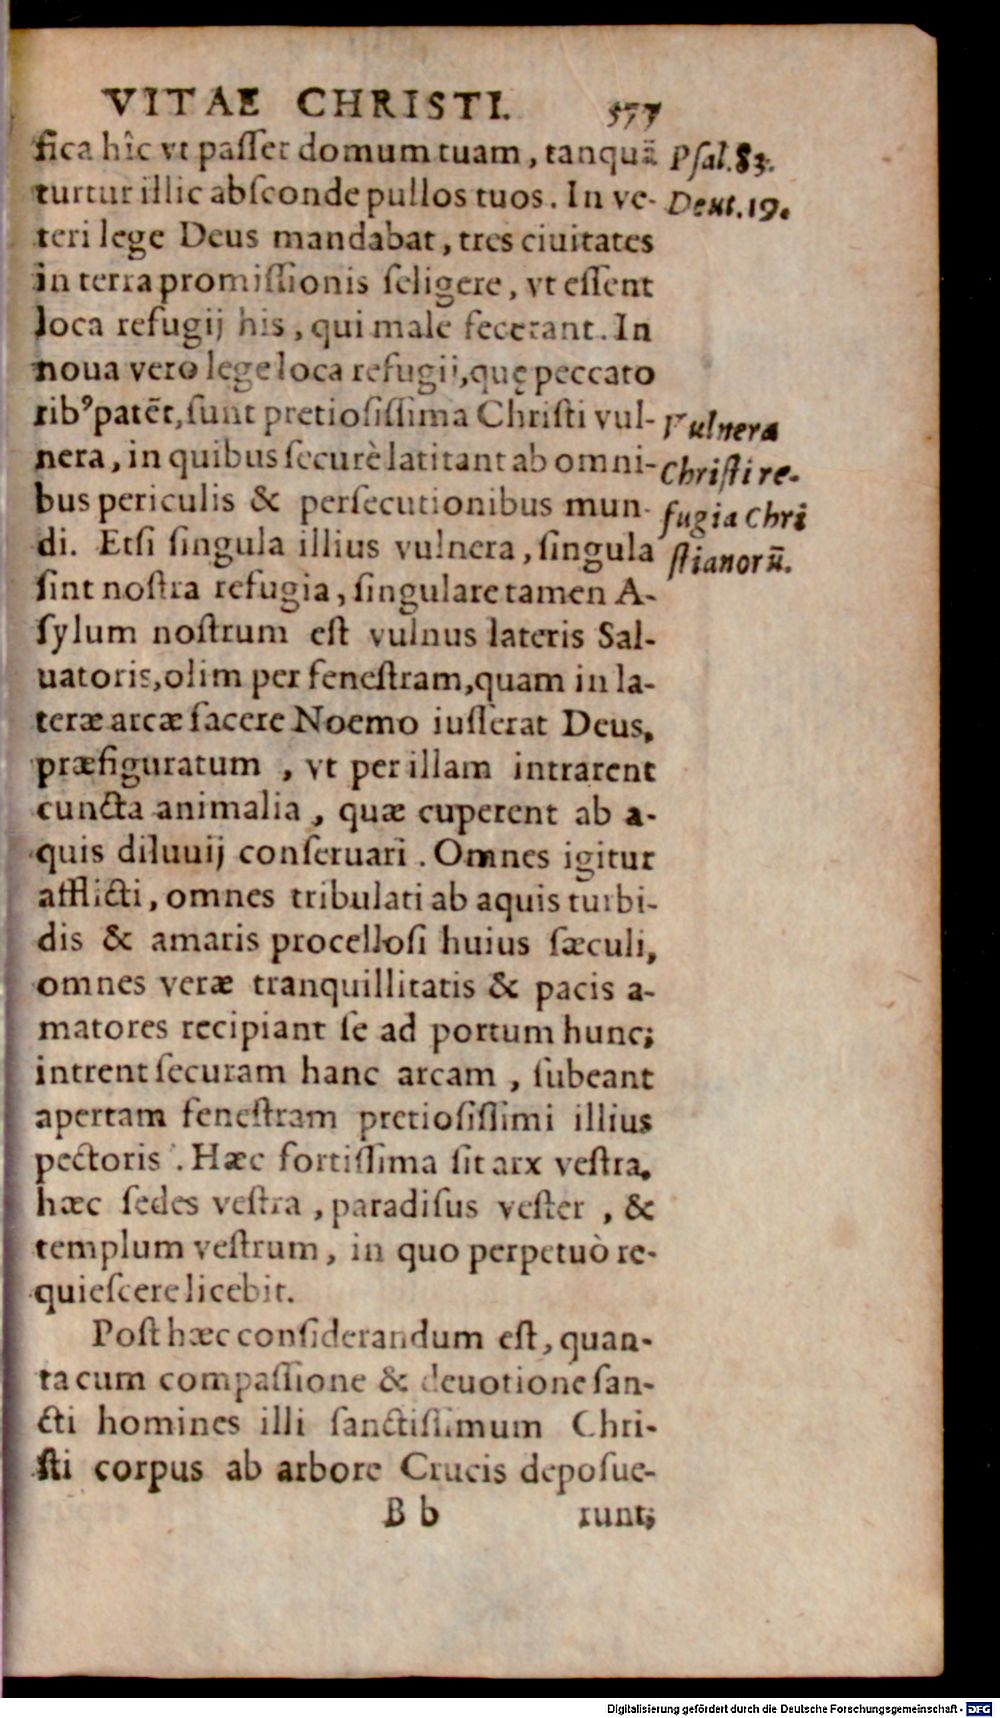 VITAE CHRISTI. 577
fica hîc vt paſſer domum tuam, tanquã
turtur illic abſconde pullos tuos. In ve-
teri lege Deus mandabat, tres ciuitates
in terra promiſſionis ſeligere, vt eſſent
loca refugij his, qui male fecerant. In
noua vero lege loca refugij, quę peccato
ribꝰ patēt, ſunt pretioſiſſima Chriſti vul-
nera, in quibus ſecurè latitant ab omni-
bus periculis & perſecutionibus mun-
di. Etſi ſingula illius vulnera, ſingula
ſint noſtra refugia, ſingulare tamen A-
ſylum noſtrum eſt vulnus lateris Sal-
uatoris, olim per feneſtram, quam in la-
teræ arcæ facere Noemo iuſſerat Deus,
præfiguratum , vt per illam intrarent
cuncta animalia, quæ cuperent ab a-
quis diluuij conſeruari. Omnes igitur
afflicti, omnes tribulati ab aquis turbi-
dis & amaris procelloſi huius ſæculi,
omnes veræ tranquillitatis & pacis a-
matores recipiant ſe ad portum hunc;
intrent ſecuram hanc arcam, ſubeant
apertam feneſtram pretioſiſſimi illius
pectoris. Hæc fortiſſima ſit arx veſtra,
hæc ſedes veſtra, paradiſus veſter, &
templum veſtrum, in quo perpetuò re-
quieſcere licebit.
Poſt hæc conſiderandum eſt, quan-
ta cum compaſſione & deuotione ſan-
cti homines illi ſanctiſſimum Chri-
ſti corpus ab arbore Crucis depoſue-
B b runt;
Pſal. 83.
Deut. 19.
Vulnera
Chriſti re-
fugia Chri
ſtianorũ.
Digitalisierung gefördert durch die Deutsche Forschungsgemeinschaft - DFG